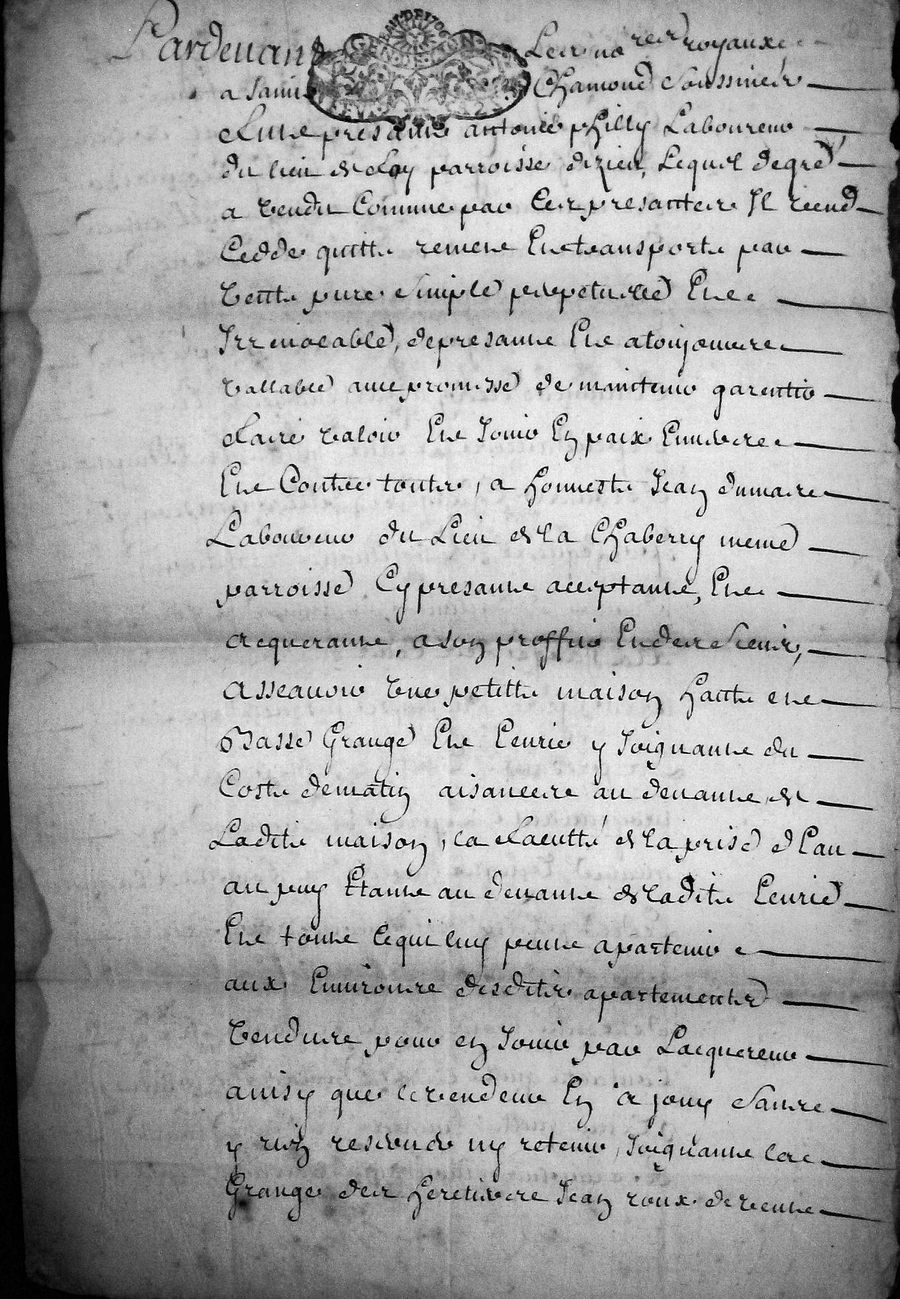 Pardevant Les no.res royaux
a Saint Chamond Soussignés
fut presant antoine philly Laboureur
du lieu de Loy parroisse dizieu, Lequel de gré
a vendu Comme par Ces presantes Il vend
Cedde quitte remet Et transporte par
vente pure simple perpetuelle Et
Irrevocable, de presant Et a toujours
vallable avec promesse de maintenir garentir
faire valoir Et jouir En paix Envers
Et Contre toutes, a honneste Jean dumas
Laboureur du Lieu de la Chaberry meme
parroisse Cy presant acceptant, Et
acquerant, a son proffit Et des siens,
assavoir Une petite maison haute et
Basse Grange Et Ecurie y joignant du
Costé de matin aisances au devant de
Ladite maison, la faculté de la prise d Eau
au puy Etant au devant de ladite Ecurie
Et tout ce qui luy peut apartenir
aux Environs desdits apartements
vendus pour en jouir par Lacquereur
ainsy que le vendeur En a jouy sans
y rien reserver ny retenir, joignant les
Grange des heretiers Jean roux de vent